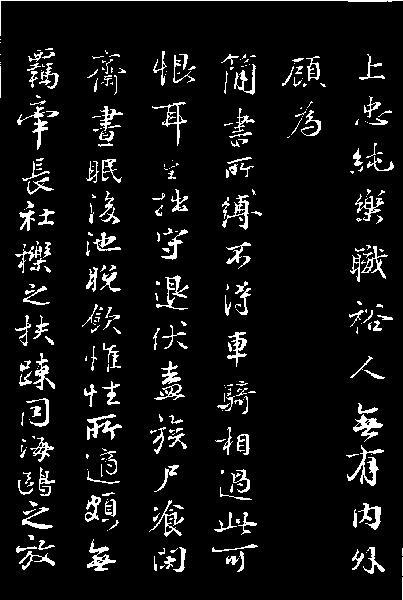 上忠純樂職裕人無有内外
顧為
簡書所縛不得車騎相過此可
恨耳生拙守退伏盍族尸飡閑
齋晝眠後池晚飲惟性所適頗無
羈牽長社櫟之扶踈同海鷗之放